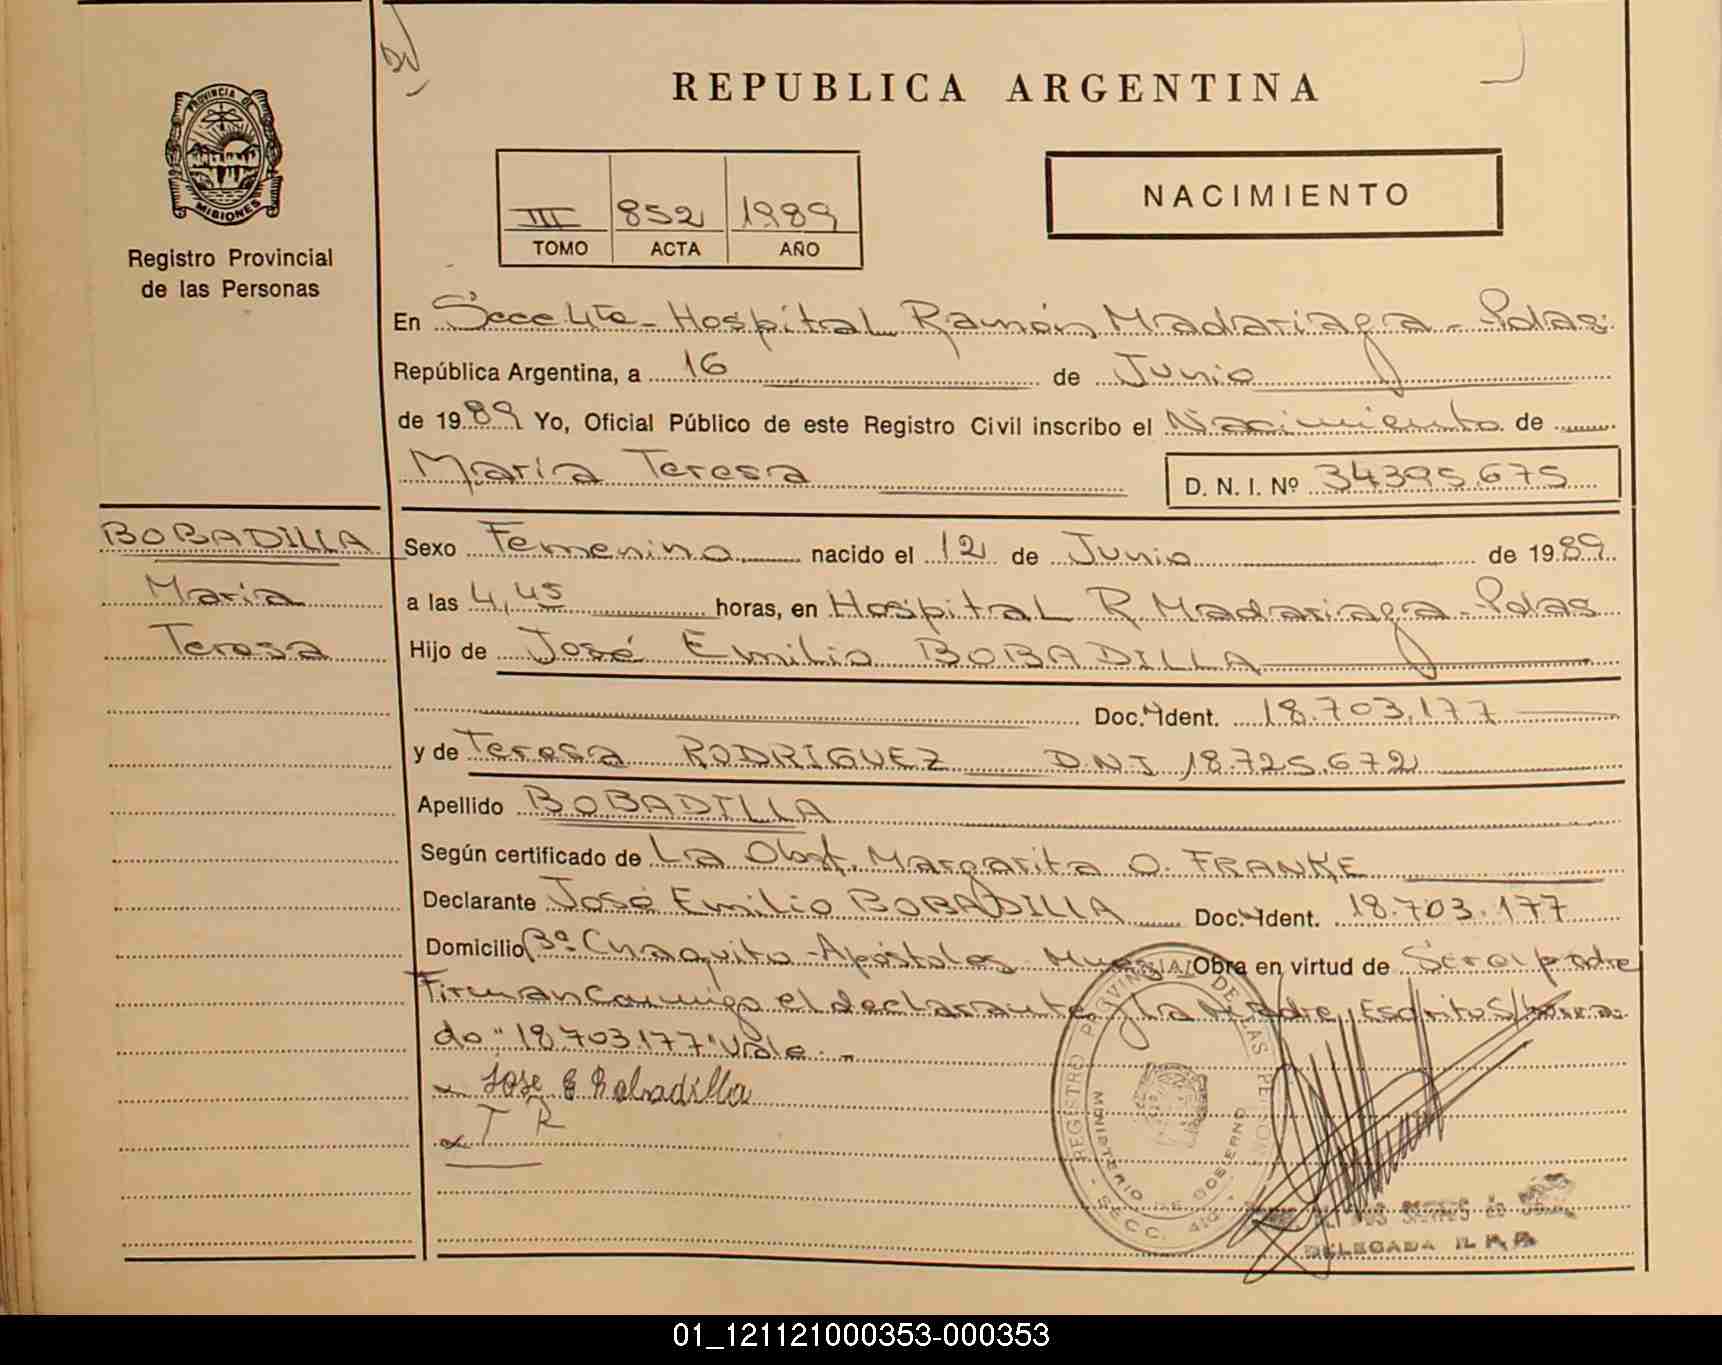 REPUBLICA ARGENTINA
PROVINCIA DE MISIONES
Registro Provincial
de las Personas
III 852 1989
TOMO ACTA AÑO
NACIMIENTO
En Secc 4ta - Hospital Ramón Madariaga - Pdas.
República Argentina, a 16 de Junio
de 1989 Yo, Oficial Público de este Registro Civil inscribo el Nacimiento de
María Teresa D. N. I. Nº 34395.675
BOBADILLA
María
Teresa
Sexo Femenino nacido el 12 de Junio de 1989
a las 4,45 horas, en Hospital R. Madariaga - Pdas
Hijo de José Emilio BOBADILLA
Doc. Ident. 18.703.177
y de Teresa RODRIGUEZ DNI 18.725.672
Apellido BOBADILLA
Según certificado de La Obst. Margarita O. FRANKE
Declarante José Emilio BOBADILLA Doc. Ident. 18.703.177
Domicilio Bº Chaquito - Apóstoles - Mnes Obra en virtud de Ser el padre
Firman conmigo el declarante y la Madre, Escrito s/borra
do "18.703.177" Vale. -
Jose E Bobadilla
T R
REGISTRO PROVINCIAL DE LAS PERSONAS
MINISTERIO DE GOBIERNO
SECC. 4ta.
DELEGADA
01_121121000353-000353